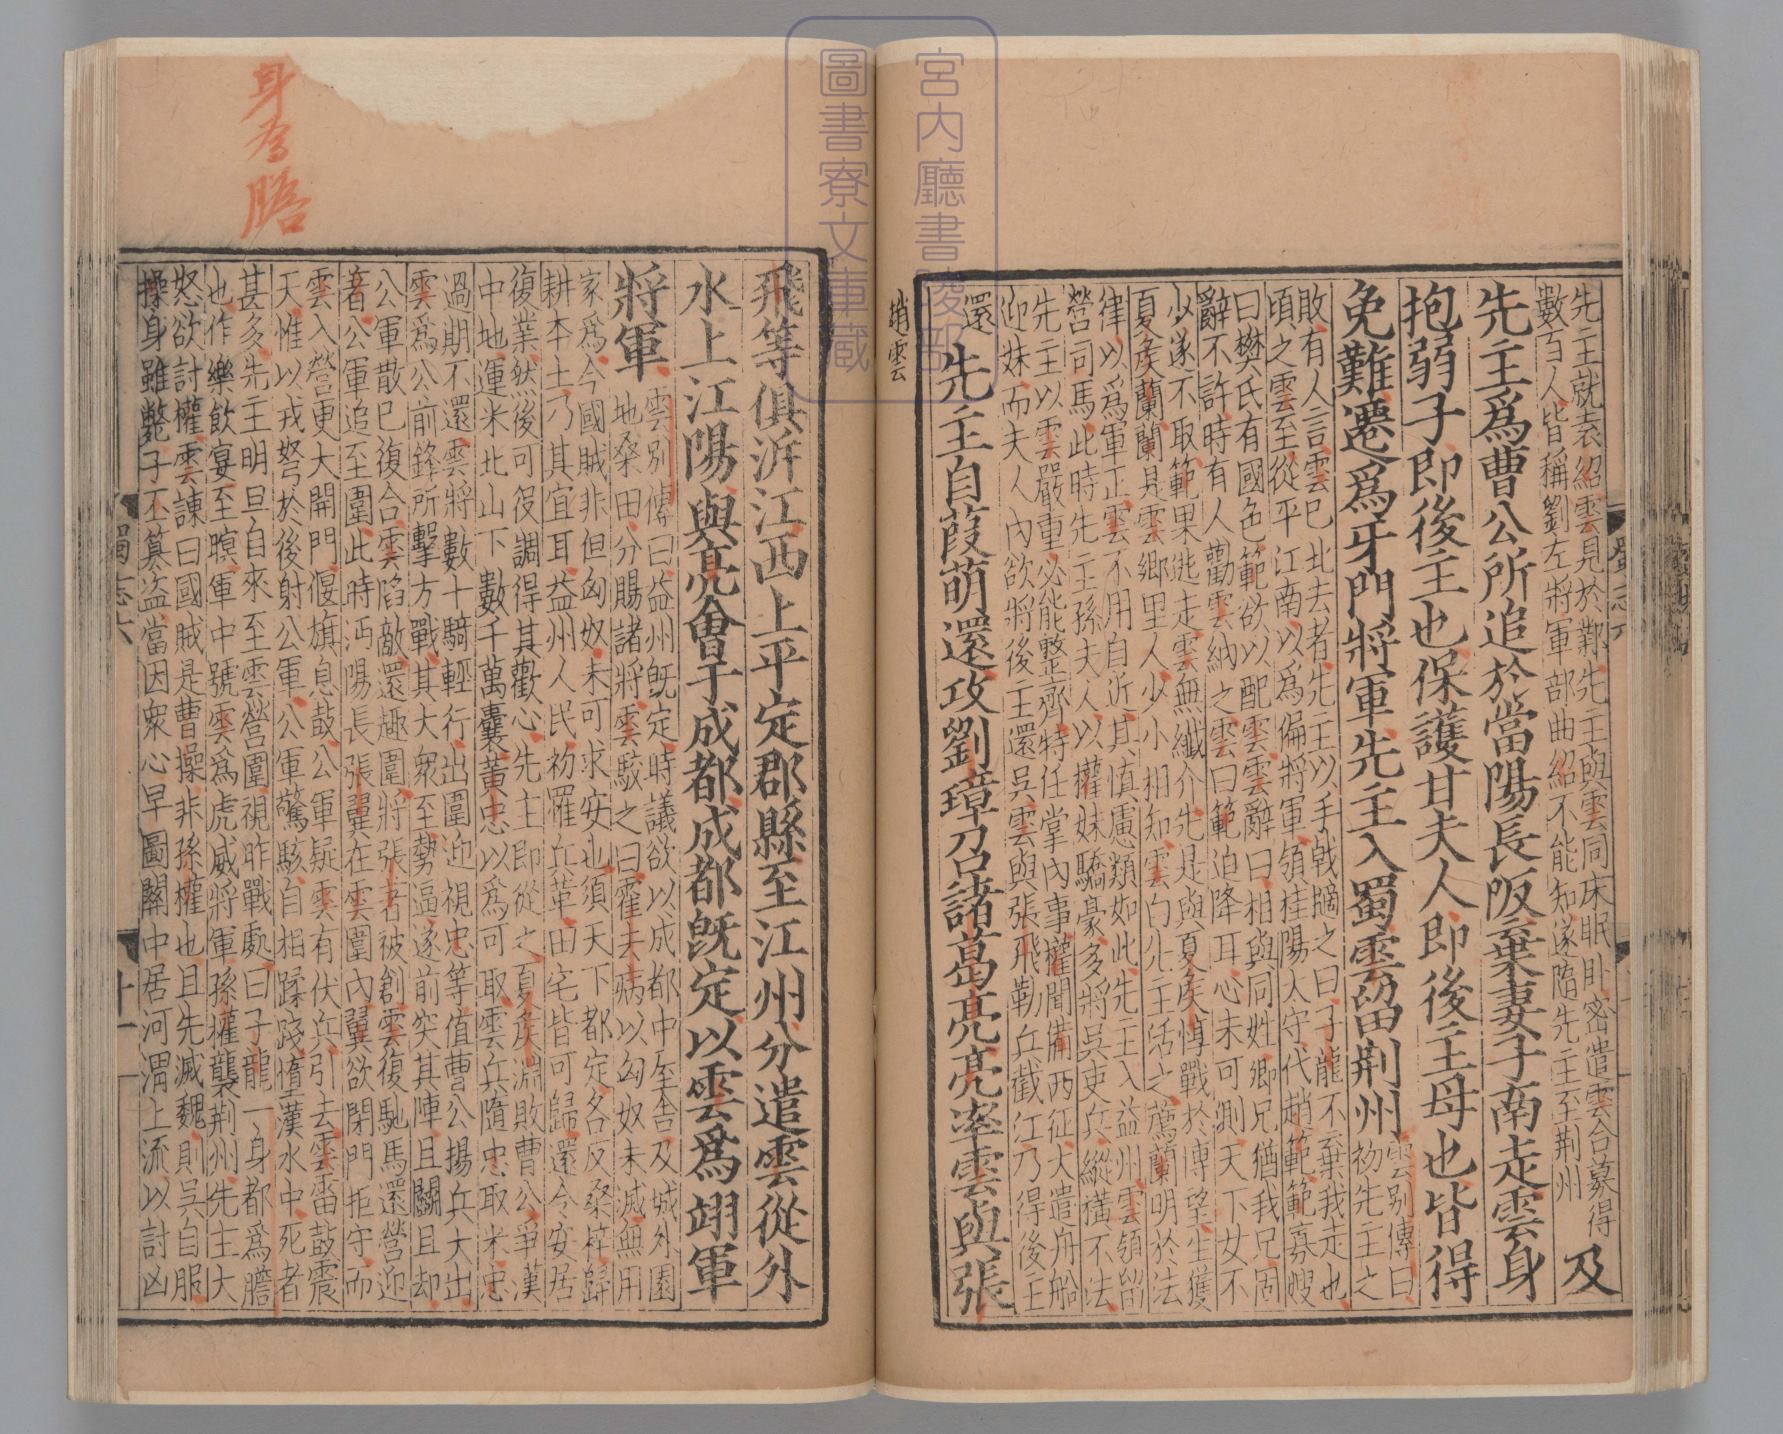 先主就袁紹雲見於鄴先主與雲同床眠卧密遣雲合募得
數百人皆稱劉左將軍部曲紹不能知遂隨先主至荆州
及
先主爲曹公所追於當陽長阪棄妻子南走雲身
抱弱子即後主也保護甘夫人即後主母也皆得
免難遷爲牙門將軍先主入蜀雲留荆州
雲别傳曰
初先主之
敗有人言雲巳北去者先主以手戟擿之曰子龍不棄我走也
頃之雲至從平江南以爲偏將軍領桂陽太守代趙範範寡嫂
曰樊氏有國色範欲以配雲雲辭曰相與同姓卿兄猶我兄固
辭不許時有人勸雲納之雲曰範迫降耳心未可測天下女不
少遂不取範果逃走雲無纖介先是與夏侯惇戰於博望生獲
夏侯蘭蘭是雲鄉里人少小相知雲白先主活之薦蘭明於法
律以爲軍正雲不用自近其慎慮類如此先主入益州雲領留
營司馬此時先主孫夫人以權妹驕豪多將吳吏兵縱橫不法
先主以雲嚴重必能整齊特任掌內事權聞備西征大遣舟船
迎妹而夫人內欲將後主還吳雲與張飛勒兵截江乃得後主
還
先主自葭萌還攻劉璋召諸葛亮亮率雲與張
趙雲
飛等俱泝江西上平定郡縣至江州分遣雲從外
水上江陽與亮會于成都成都旣定以雲爲翊軍
將軍
雲别傳曰益州旣定時議欲以成都中屋舍及城外園
地桑田分賜諸將雲駮之曰霍去病以匈奴未滅無用
家爲今國賊非但匈奴未可求安也須天下都定各反桑梓歸
耕本土乃其宜耳益州人民初罹兵革田宅皆可歸還今安居
復業然後可役調得其歡心先主即從之夏侯淵敗曹公爭漢
中地運米北山下數千萬囊黃忠以爲可取雲兵隨忠取米忠
過期不還雲將數十騎輕行出圍迎視忠等值曹公揚兵大出
雲爲公前鋒所擊方戰其大衆至勢逼遂前突其陣且鬬且却
公軍散巳復合雲陷敵還趣圍將張著被創雲復馳馬還營迎
著公軍追至圍此時沔陽長張翼在雲圍內翼欲閉門拒守而
雲入營更大開門偃旗息鼓公軍疑雲有伏兵引去雲雷鼓震
天惟以戎弩於後射公軍公軍驚駭自相蹂踐墮漢水中死者
甚多先主明旦自來至雲營圍視昨戰處曰子龍一身都爲膽
也作樂飲宴至暝軍中號雲爲虎威將軍孫權襲荆州先主大
怒欲討權雲諫曰國賊是曹操非孫權也且先滅魏則吳自服
操身雖斃子丕簒盜當因衆心早圖關中居河渭上流以討凶
蜀志六
十一
宮內廳書陵部
圖書寮文庫藏